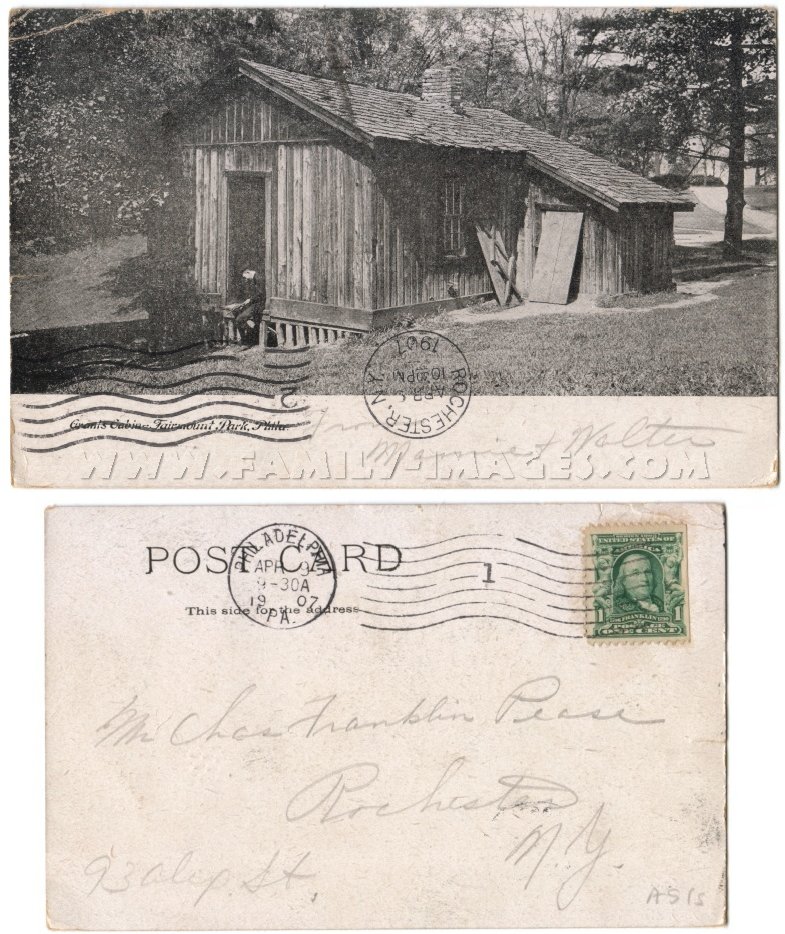 ROCHESTER, N.Y.
APR
10 PM
1907
2
Grant's Cabin, Fairmount Park, Phila.
From
Mamie & Walter
WWW.FAMILY-IMAGES.COM
POST CARD
This side for the address
PHILADELPHIA
APR 9
9-30A
19 07
PA.
1
UNITED STATES OF
AMERICA
1 1
FRANKLIN
POSTAGE
ONE CENT
Mr Chas Franklin Pease
Rochester
N.Y.
St.
AS IS